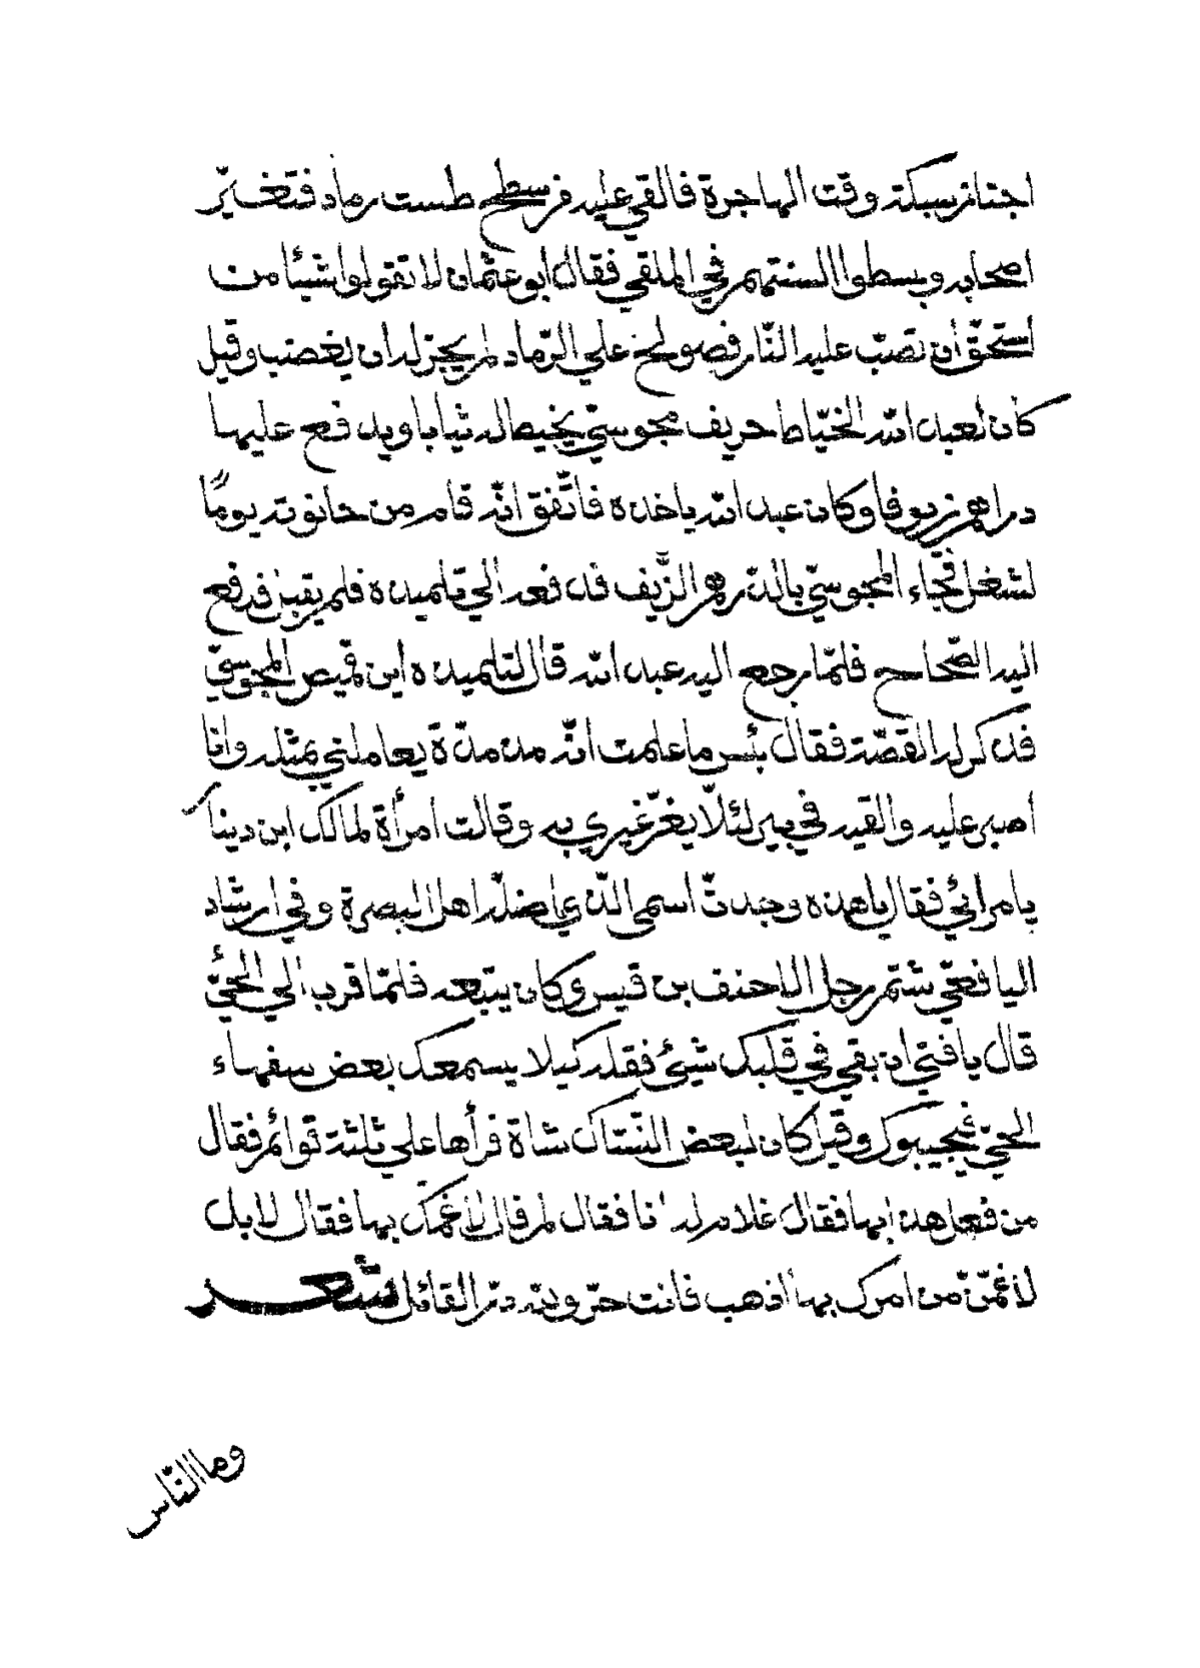 اجتاز بسكة وقت الهاجرة فالقي عليه من سطح طست رماد فتغيّر
اصحابه وبسطوا السنتهم في الملقي فقال ابو عثمان لا تقولوا شيئا من
استحقّ أن تصبّ عليه النّار فصولح علي الرّماد لم يجز له ان يغضب وقيل
كان لعبد الله الخيّاط حريف مجوسيّ يخيط له ثيابا ويدفع عليها
دراهم زيوفا وكان عبد الله ياخذه فاتّفق انّه قام من حانوته يومًا
لشغل فجاء المجوسيّ بالدّرهم الزّيف فدفعه الي تلميذه فلم يقبل فدفع
اليه الصّحاح فلمّا رجع اليه عبد الله قال لتلميذه اين قميص المجوسيّ
فذكر له القصّة فقال بئس ما علمت انّه من مدّة يعاملني بمثله وانا
اصبر عليه والقيه في بير لئلّا يغرّ غيري به وقالت امرأة لمالك ابن دينار
يا مرائي فقال يا هذه وجدت اسمي الّذي اضلّه اهل البصرة وفي ارشاد
اليافعيّ شتم رجل الاحنف بن قيس وكان يتبعه فلمّا قرب الي الحيّ
قال يا فتي ان بقي في قلبك شيئ فقله كيلا يسمعك بعض سفهاء
الحيّ فيجيبوك وقيل كان لبعض النسّاك شاة فرأها علي ثلثة قوائم فقال
من فعل هذا بها فقال غلام له انا فقال لم قال لاغمّك بها فقال لا بل
لاغمّنّ من امرك بها اذهب فانت حرّ ولله درّ القائل شعر
وما النّاس